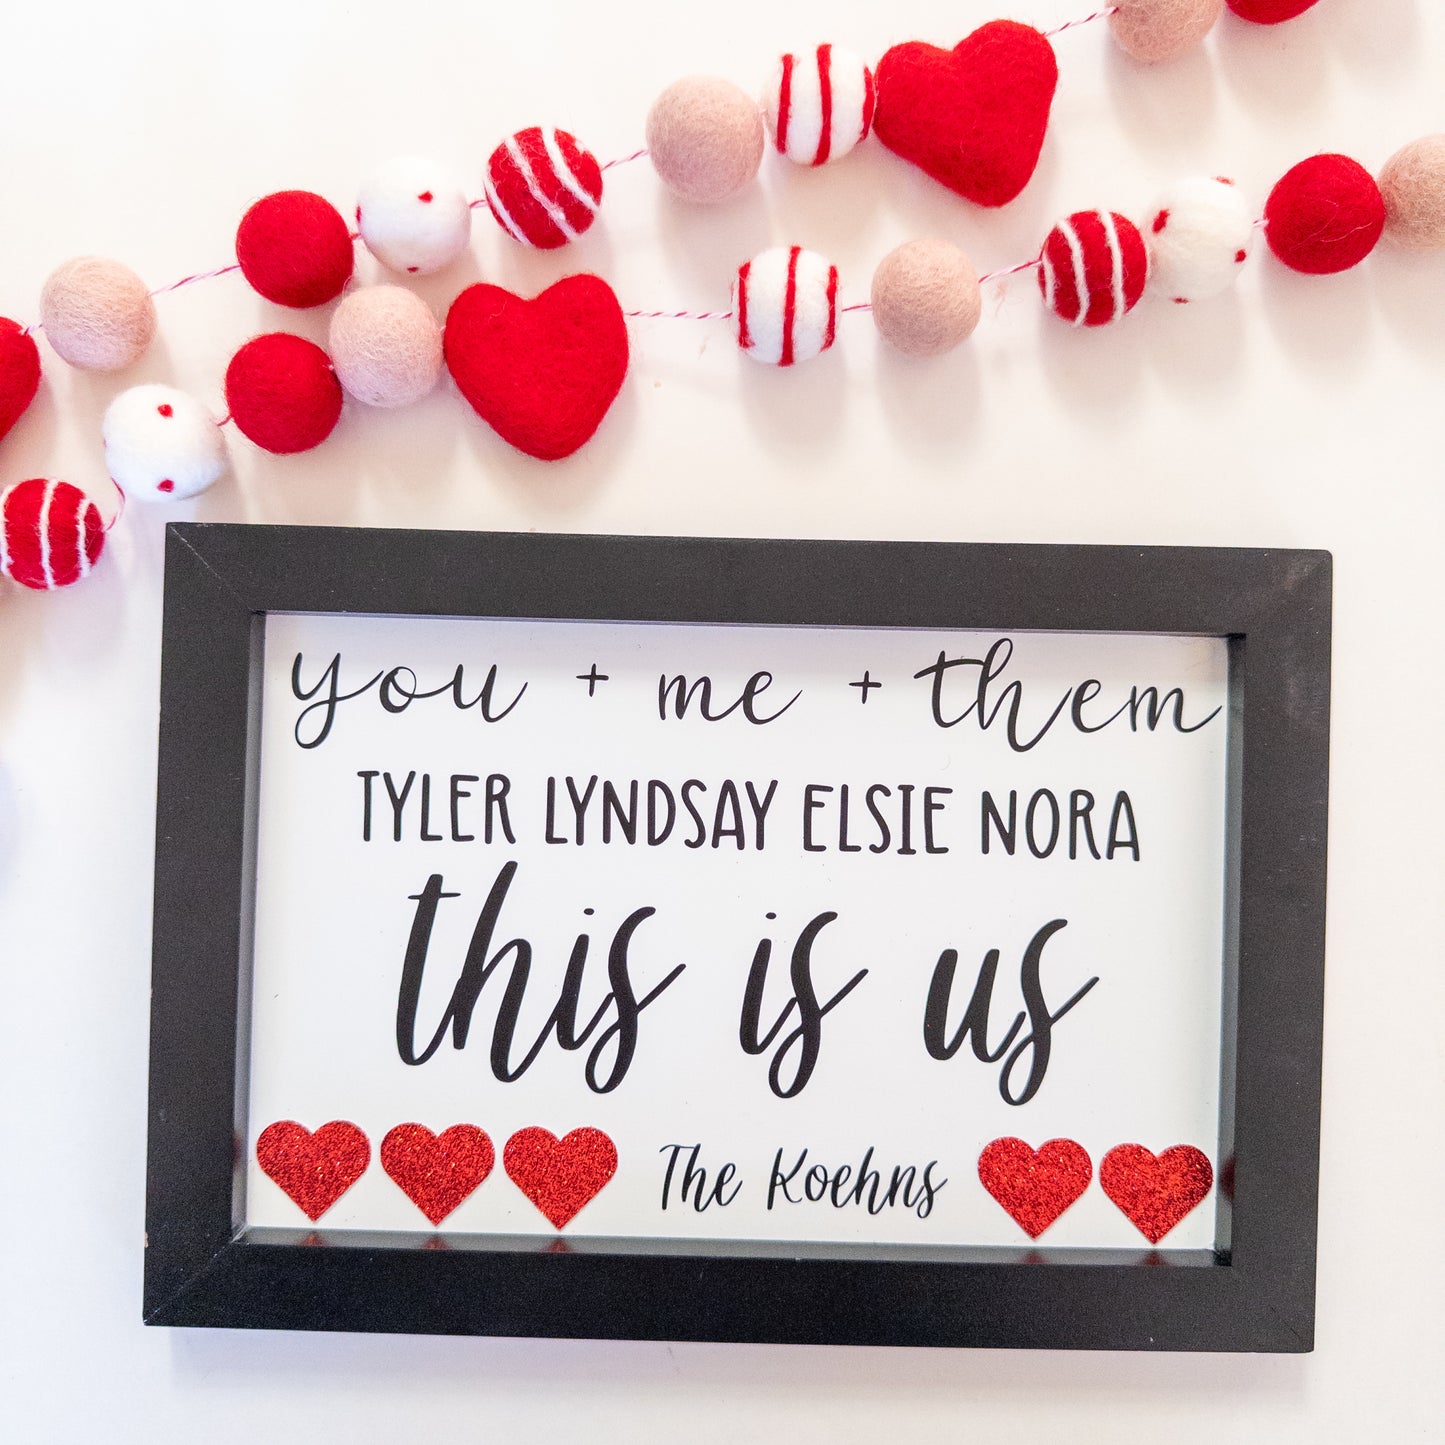 you + me + them
TYLER LYNDSAY ELSIE NORA
this is us
The Koehns